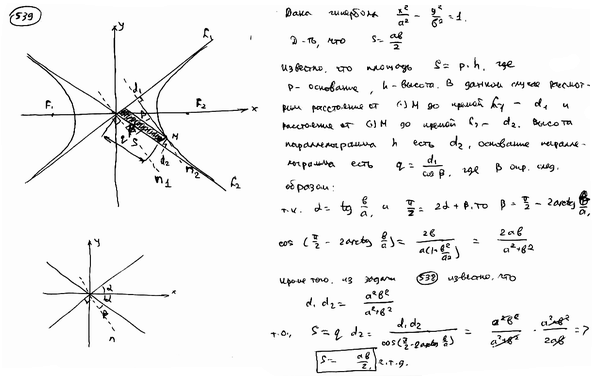 539
y
x
L₁
L₂
F₁
F₂
d₁
d₂
M
q
S
n₁
n₂
y
x
α
α
β
n
Дана гипербола x²/a² - y²/b² = 1.
Д-ть, что S = ab/2
Известно, что площадь S = p·h, где
p - основание, h - высота. В данном случае рассмот-
рим расстояние от (·) M до прямой L₁ - d₁ и
расстояние от (·) M до прямой L₂ - d₂. Высота
параллелограмма h есть d₂, основание паралле-
лограмма есть q = d₁/cos β, где β опр. след.
образом:
т.к. α = tg b/a, и π/2 = 2α + β, то β = π/2 - 2arctg b/a,
cos (π/2 - 2arctg b/a) = 2b/a(1+b²/a²) = 2ab/a²+b²
Кроме того, из задачи 538 известно, что
d₁ d₂ = a²b²/a²+b²
т.о., S = q d₂ = d₁d₂/cos(π/2-2arctg b/a) = a²b²/a²+b² · a²+b²/2ab =>
S = ab/2, ч.т.д.